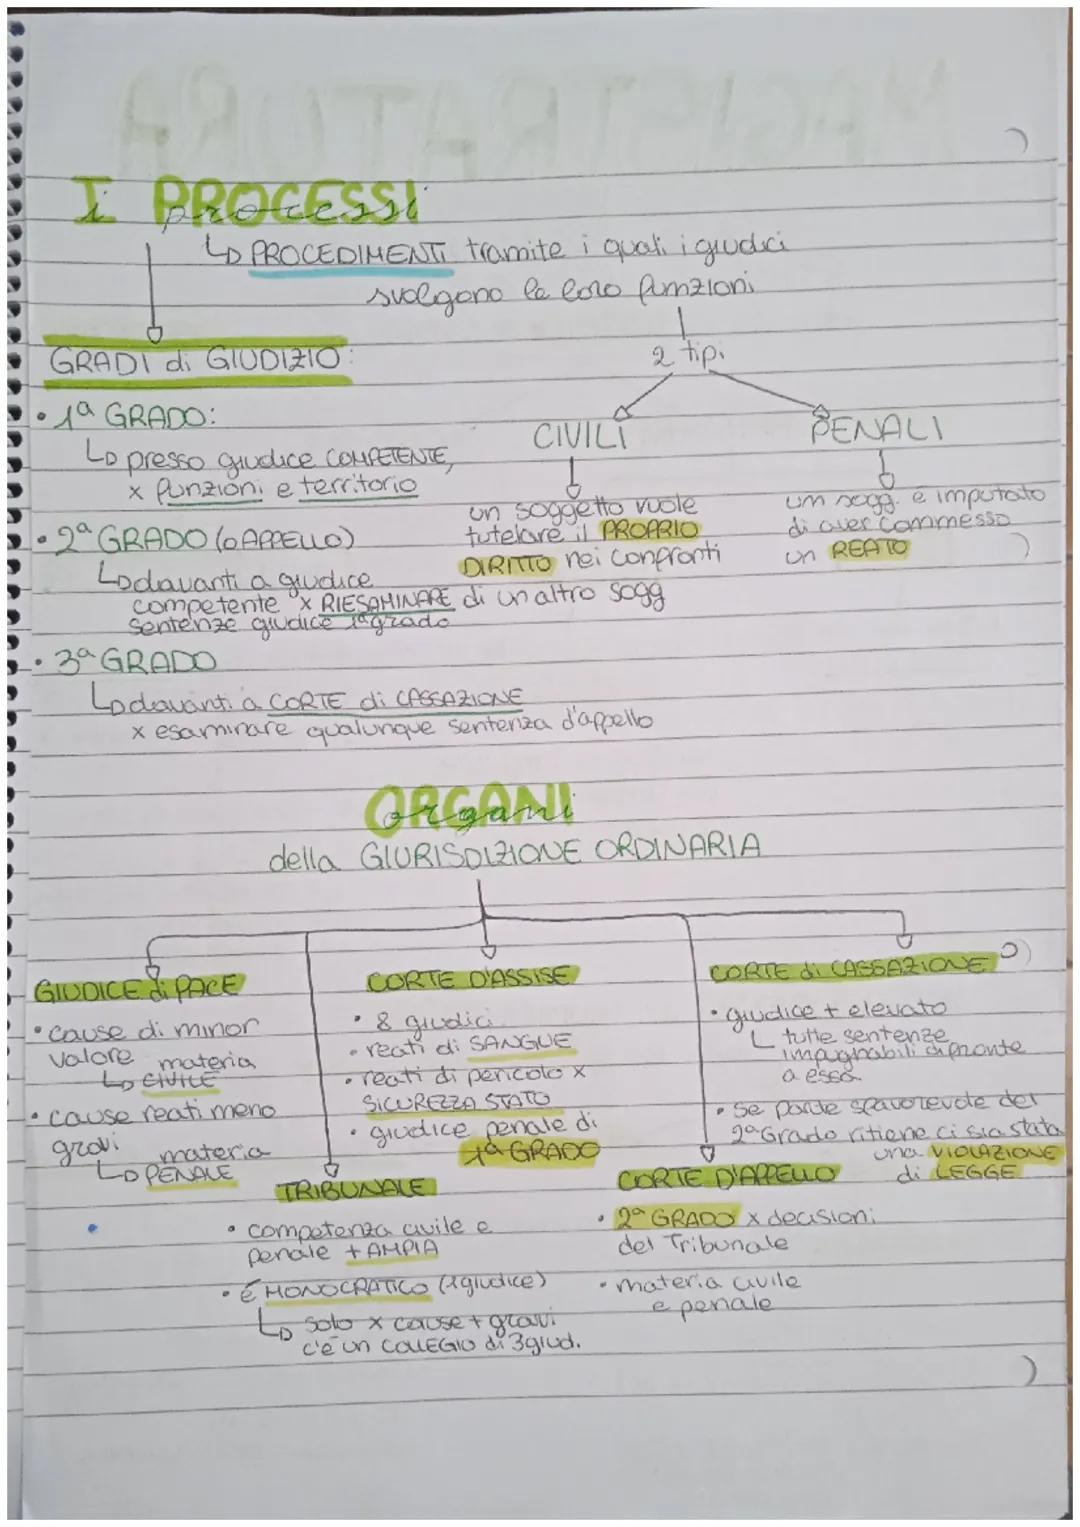 I PROCESSI
processi
PROCEDIMENTI tramite i quali i giudici
svolgono le loro funzioni
2 tipi
CIVILI
un soggetto vuole
tutelare il PROPRIO
DIRITTO nei confronti
di un altro sogg
PENALI
um sogg. é imputato
di aver commesso
un REATO
GRADI di GIUDIZIO:
• 1ª GRADO:
presso giudice COMPETENTE,
x funzioni e territorio
• 2ª GRADO (o APPELLO)
davanti a giudice
competente x RIESAMINARE
sentenze giudice 1ª grado
• 3ª GRADO
davanti a CORTE di CASSAZIONE
x esaminare qualunque sentenza d'appello
ORGANI
organi
della GIURISDIZIONE ORDINARIA
GIUDICE di PACE
• cause di minor
valore materia
CIVILE
• cause reati meno
gravi materia
PENALE
TRIBUNALE
• competenza civile e
penale + AMPIA
• é MONOCRATICO (1giudice)
solo x cause + gravi
c'é un COLLEGIO di 3giud.
CORTE D'ASSISE
• 8 giudici
• reati di SANGUE
• reati di pericolo x
SICUREZZA STATO
• giudice penale di
1ª GRADO
CORTE D'APPELLO
• 2ª GRADO x decisioni
del Tribunale
• materia civile
e penale
CORTE di CASSAZIONE
• giudice + elevato
tutte sentenze
impugnabili di fronte
a essa
• se parte sfavorevole del
2ª Grado ritiene ci sia stata
una VIOLAZIONE
di LEGGE
MAGISTRATURA